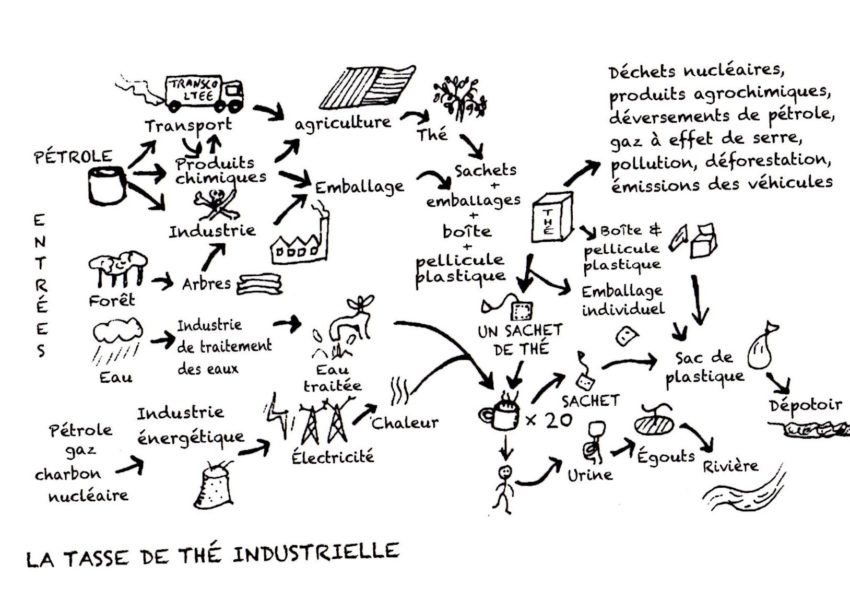 TRANSCO
LTEE
Transport
PÉTROLE
Produits
chimiques
Industrie
agriculture
Thé
Emballage
Sachets
+
emballages
+
boîte
+
pellicule
plastique
THÉ
Déchets nucléaires,
produits agrochimiques,
déversements de pétrole,
gaz à effet de serre,
pollution, déforestation,
émissions des véhicules
Boîte &
pellicule
plastique
Emballage
individuel
ENTRÉES
Forêt
Arbres
Eau
Industrie
de traitement
des eaux
Eau
traitée
UN SACHET
DE THÉ
SACHET
Sac de
plastique
Dépotoir
Pétrole
gaz
charbon
nucléaire
Industrie
énergétique
Électricité
Chaleur
× 20
Urine
Égouts
Rivière
LA TASSE DE THÉ INDUSTRIELLE